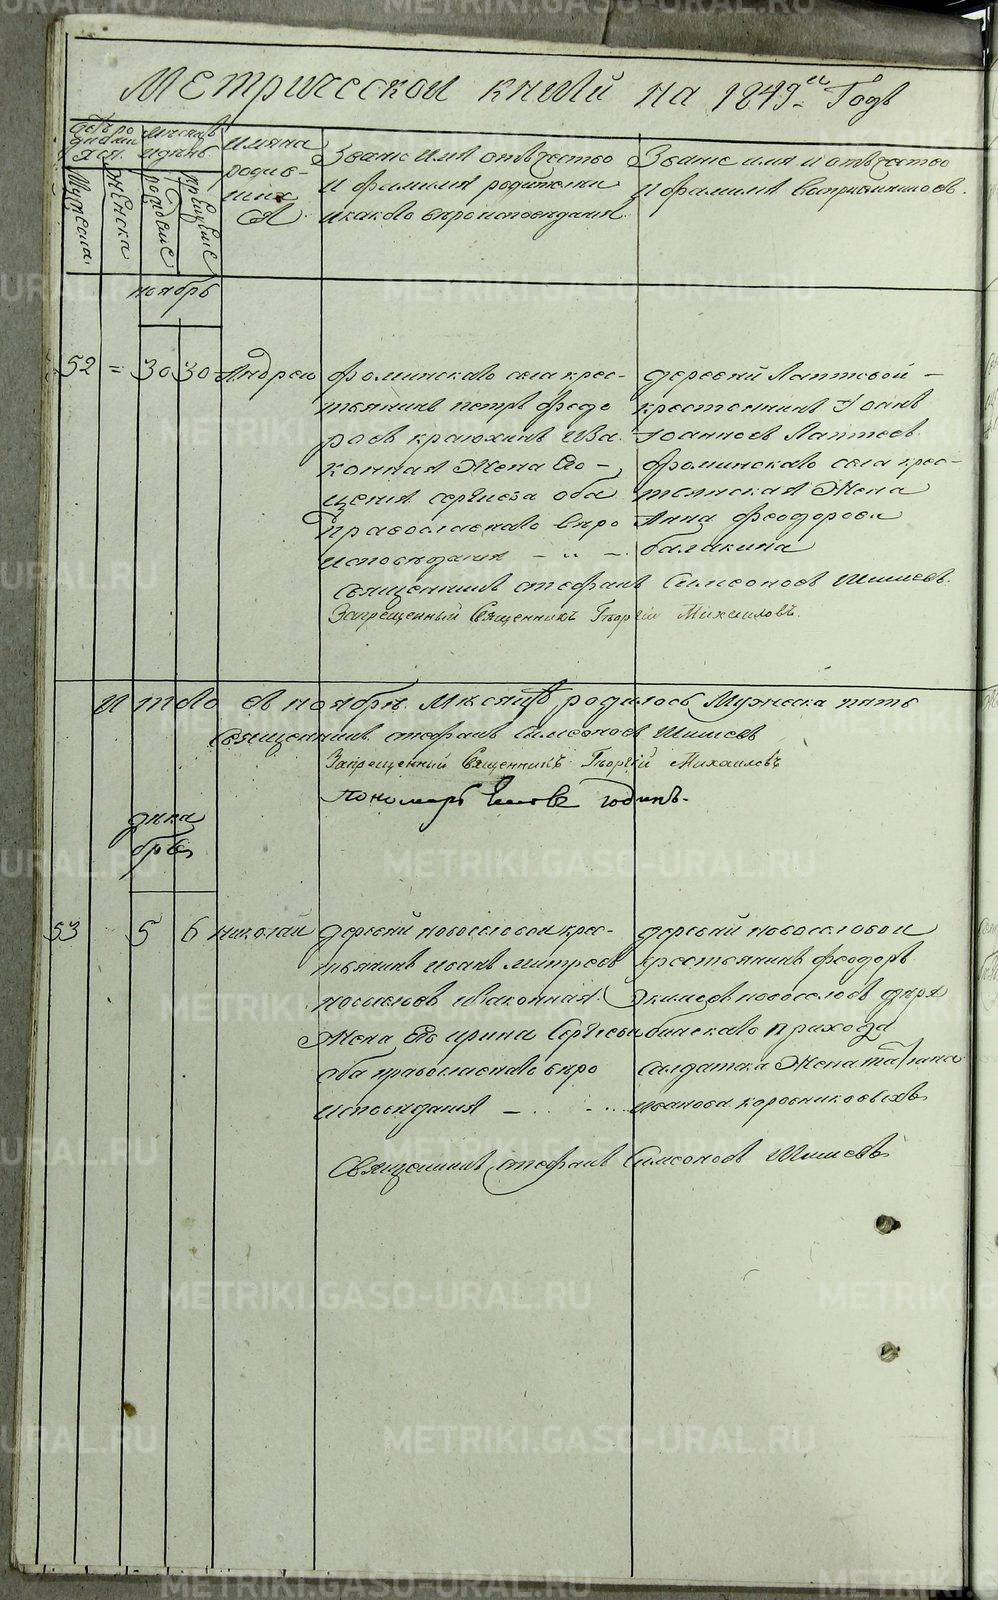 Метрической книги на 1849й Годъ
Счетъ родившихся
Мужеска
Женска
Мѣсяцъ и день
рожденіе
крещеніе
имяна родившихся
Званіе имя отечество
и фамилія родителей
и какаго вѣроисповѣданія
Званіе имя и отечество
и фамилія воспріемниковъ
ноябрь
52 = 30 30 Андрей
фоминскаго села крес-
тьянинъ петръ феде
ровъ
конная жена его -
оба
православнаго вѣро
исповѣданія - „ -
деревни Лаптевой -
крестьянинъ Іоаннъ
Іоанновъ Лаптевъ
фоминскаго села крес-
тьянская жена
Анна феодорова
балакина
священникъ стефанъ Симеоновъ Шишевъ.
Запрещенный Священникъ Георгій Михаиловъ.
Итого въ ноябрѣ Мѣсяцѣ родилось Мужеска пять
Священникъ стефанъ Симеоновъ Шишевъ
Запрещенный Священникъ Георгій Михаиловъ
Пономарь
дека
брь
53 5 6 николай
деревни новоселовой крес-
тьянинъ иванъ митревъ
законная
жена его ирина Сергѣева
оба православнаго вѣро
исповѣданія - .. - ..
деревни новоселовой
крестьянинъ феодоръ
Екимовъ новоселовъ
бинскаго прихода
салдатска жена татьяна
иванова коровниковыхъ
Священникъ стефанъ Симеоновъ Шишевъ
METRIKI.GASO-URAL.RU